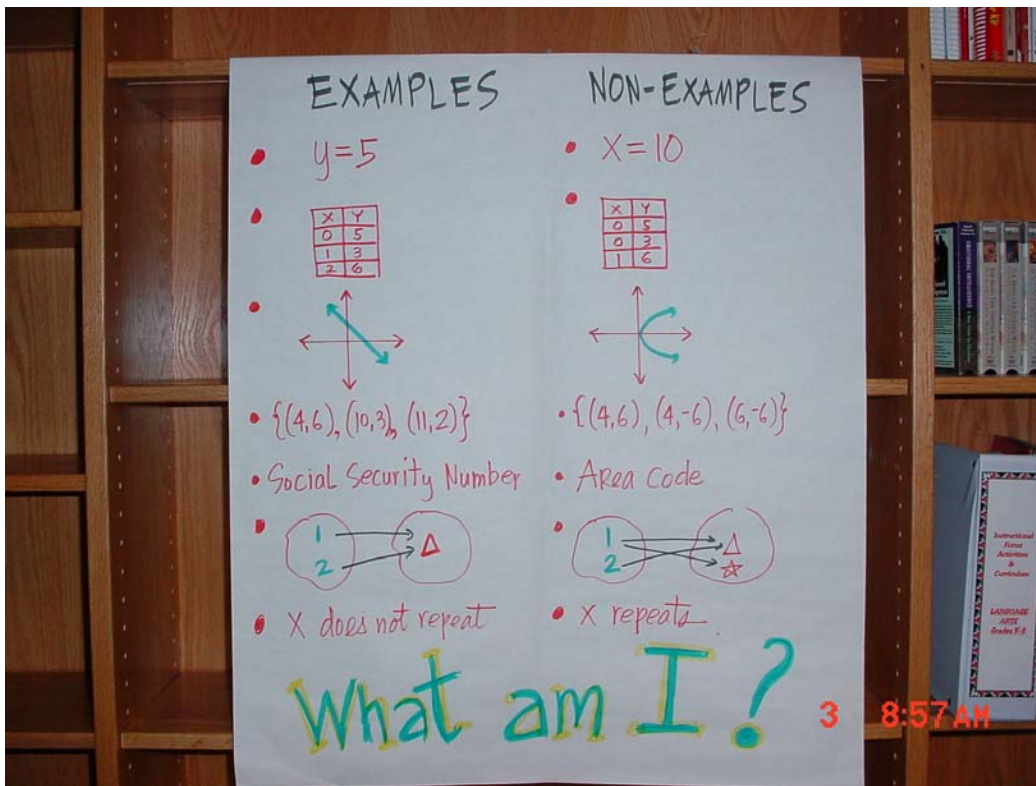 EXAMPLES
• y=5
X Y
0 5
1 3
2 6
• {(4,6), (10,3), (11,2)}
• Social Security Number
1
2
• X does not repeat
NON-EXAMPLES
• X=10
X Y
0 5
0 3
1 6
• {(4,6), (4,-6), (6,-6)}
• Area Code
1
2
• X repeats.
What am I?
3 8:57 AM
Instructional
Focus
Activities
&
Curriculum
LANGUAGE
ARTS
Grades K-5